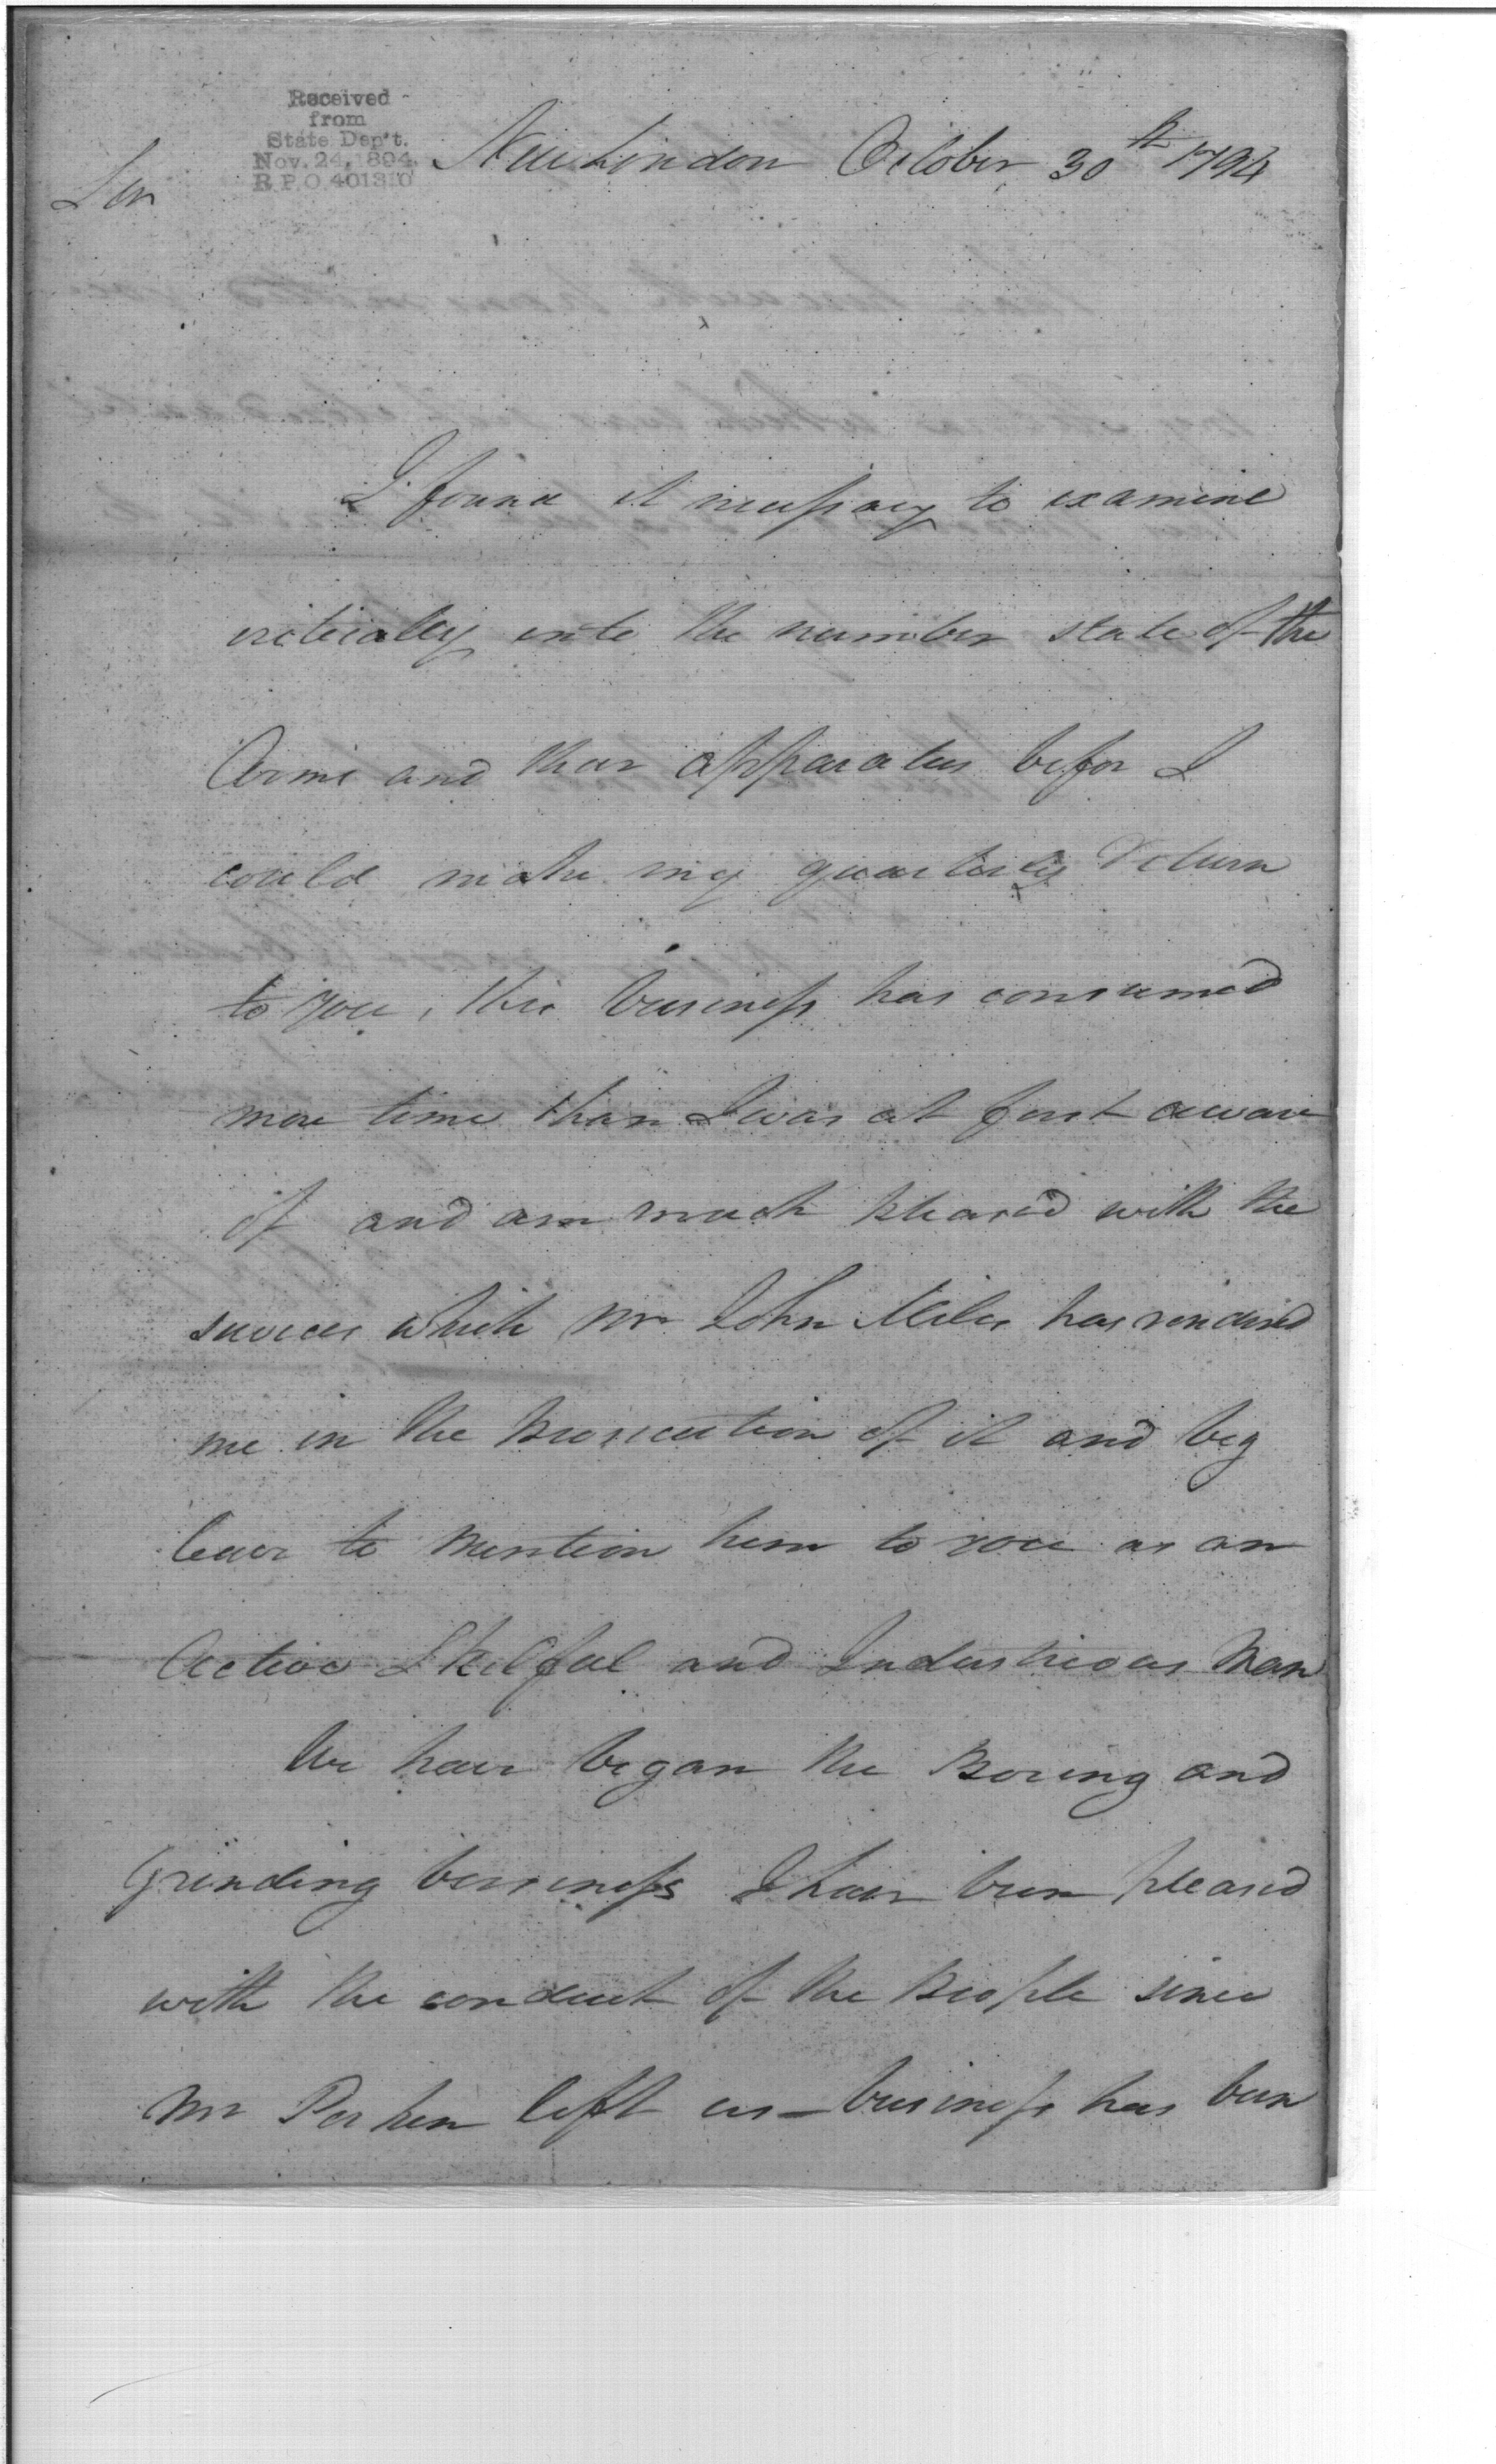 Received
from
State Dep't.
Nov. 24, 1894.
R.P.O. 401310
New London October 30th 1794
Sir
I found it necessary to examine
critically into the number state of the
Arms and thear apparatus befor I
could make my quarterly Return
to you, this business has consumed
more time than I was at first aware
of and am much pleased with the
services which Mr John Miles has rendered
me in the prosecution of it and beg
leave to mention him to you as an
Active Skilful and Industrious Man
We have began the Boring and
Grinding business I have been pleased
with the conduct of the People since
Mr Perkin left us — business has been